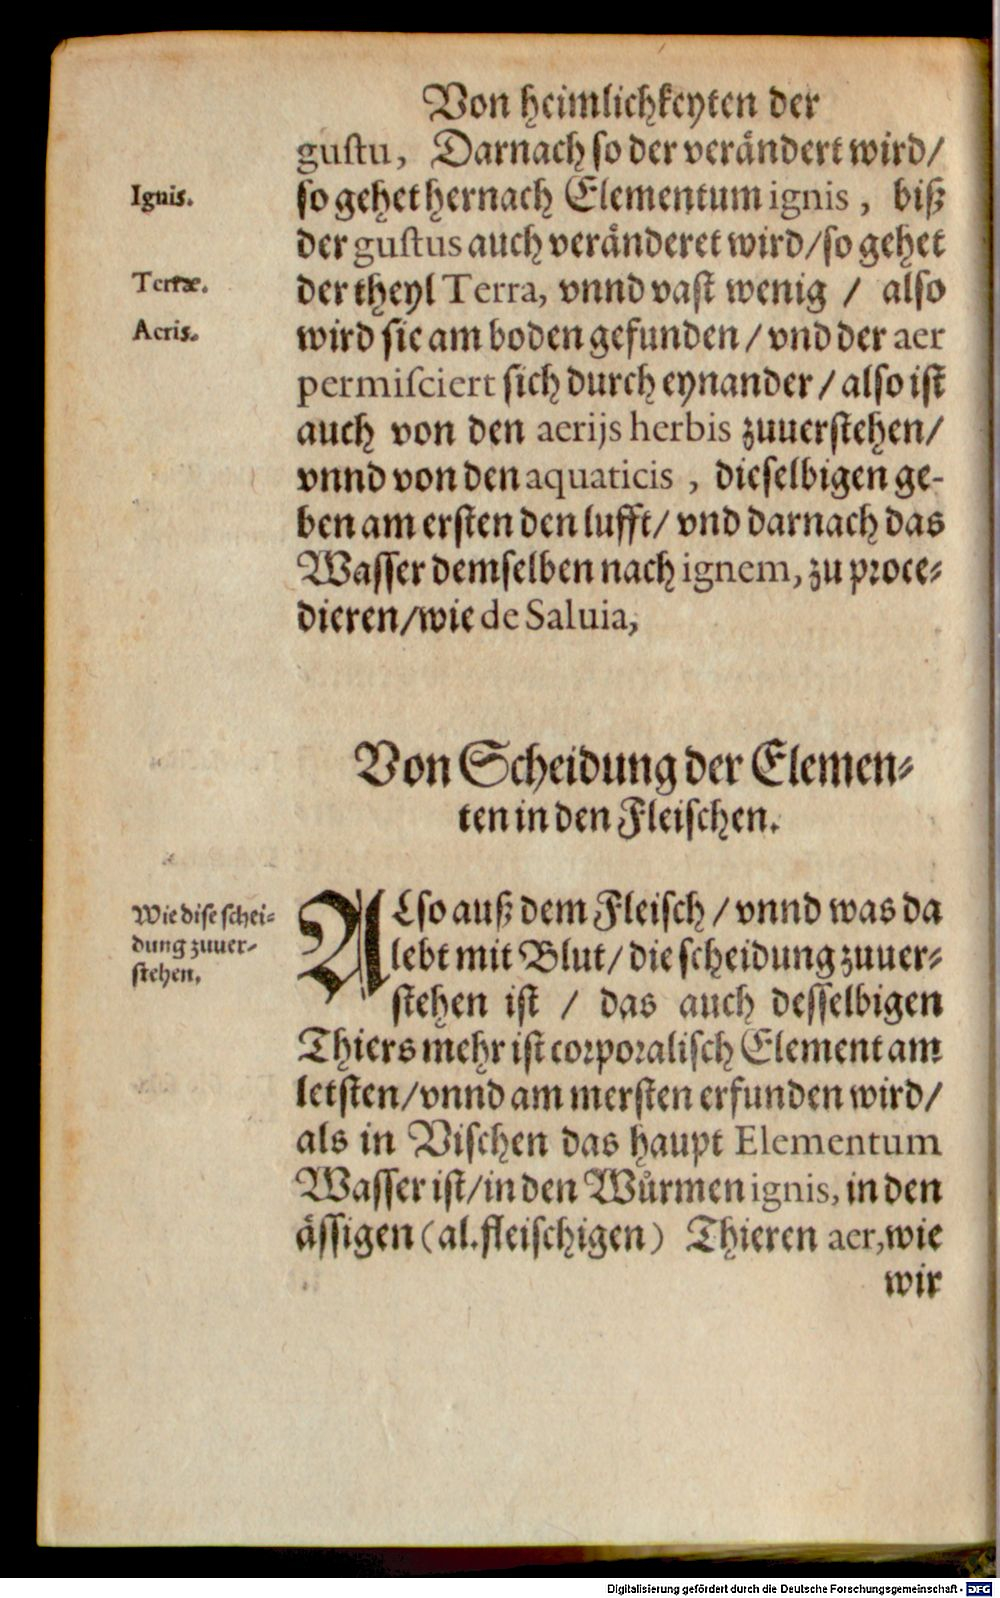 Von heimlichkeyten der
gustu, Darnach so der verändert wird/
Ignis.
so gehet hernach Elementum ignis, biß
der gustus auch veränderet wird/so gehet
Terræ.
der theyl Terra, vnnd vast wenig / also
Aeris.
wird sie am boden gefunden / vnd der aer
permisciert sich durch eynander / also ist
auch von den aerijs herbis zuuerstehen/
vnnd von den aquaticis, dieselbigen ge-
ben am ersten den lufft/ vnd darnach das
Wasser demselben nach ignem, zu proce-
dieren/wie de Saluia,
Von Scheidung der Elemen-
ten in den Fleischen.
Wie dise schei-
dung zuuer-
stehen.
ALso auß dem Fleisch / vnnd was da
lebt mit Blut / die scheidung zuuer-
stehen ist / das auch desselbigen
Thiers mehr ist corporalisch Element am
letsten/vnnd am mersten erfunden wird/
als in Vischen das haupt Elementum
Wasser ist/in den Wůrmen ignis, in den
ässigen (al. fleischigen) Thieren aer, wie
wir
Digitalisierung gefördert durch die Deutsche Forschungsgemeinschaft - DFG